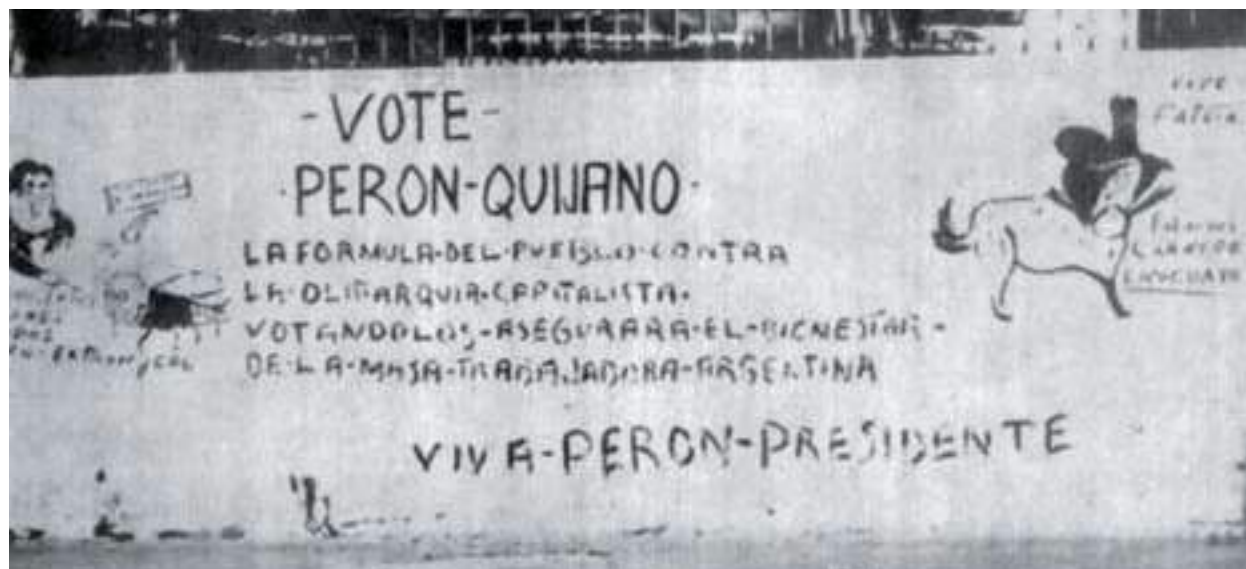 -VOTE-
·PERON-QUIJANO·
LA FORMULA·DEL·PUEBLO·CONTRA
LA·OLIGARQUIA·CAPITALISTA.
VOTANDOLOS·ASEGURARA·EL·BIENESTAR-
DE·LA·MASA·TRABAJADORA·ARGENTINA
VIVA-PERON-PRESIDENTE
URUGUAYO